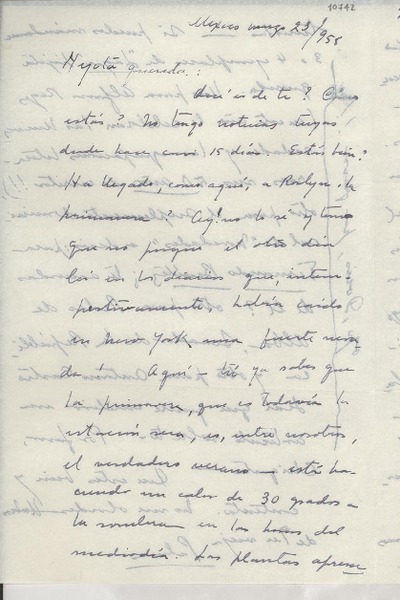 10742
Mexico marzo 23/955
Hijita querida:
Qué es de ti? Cómo
estás? No tengo noticias tuyas
desde hace casi 15 días. Estás bien?
Ha llegado, como aquí, a Roslyn, la
primavera? Ay! no lo sé y temo
que no porque el otro día
leí en los diarios que, intem-
pestivamente había caído
en New York una fuerte neva-
da! Aquí — tú ya sabes que
la primavera, que es todavía la
estación seca, es, entre nosotros,
el verdadero verano — está ha-
ciendo un calor de 30 grados a
la sombra en las horas del
mediodía. Las plantas